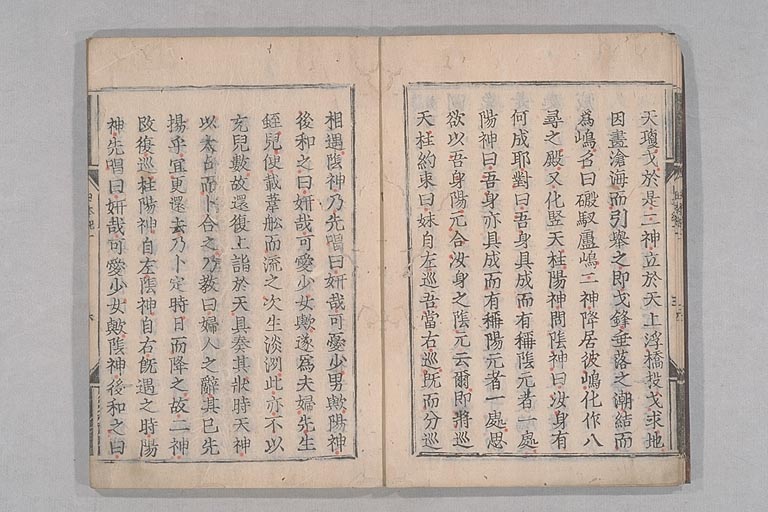 天瓊戈於是二神立於天上浮橋投戈求地
因畫滄海而引舉之即戈鋒垂落之潮結而
爲嶋名曰磤馭盧嶋二神降居彼嶋化作八
尋之殿又化竪天柱陽神問陰神曰汝身有
何成耶對曰吾身具成而有稱陰元者一處
陽神曰吾身亦具成而有稱陽元者一處思
欲以吾身陽元合汝身之陰元云爾即將巡
天柱約束曰妹自左巡吾當右巡既而分巡
相遇陰神乃先唱曰姸哉可愛少男歟陽神
後和之曰姸哉可愛少女歟遂爲夫婦先生
蛭兒便載葦船而流之次生淡洲此亦不以
充兒數故還復上詣於天具奏其狀時天神
以太占而卜合之乃教曰婦人之辭其已先
揚乎宜更還去乃卜定時日而降之故二神
改復巡柱陽神自左陰神自右既遇之時陽
神先唱曰姸哉可愛少女歟陰神後和之曰